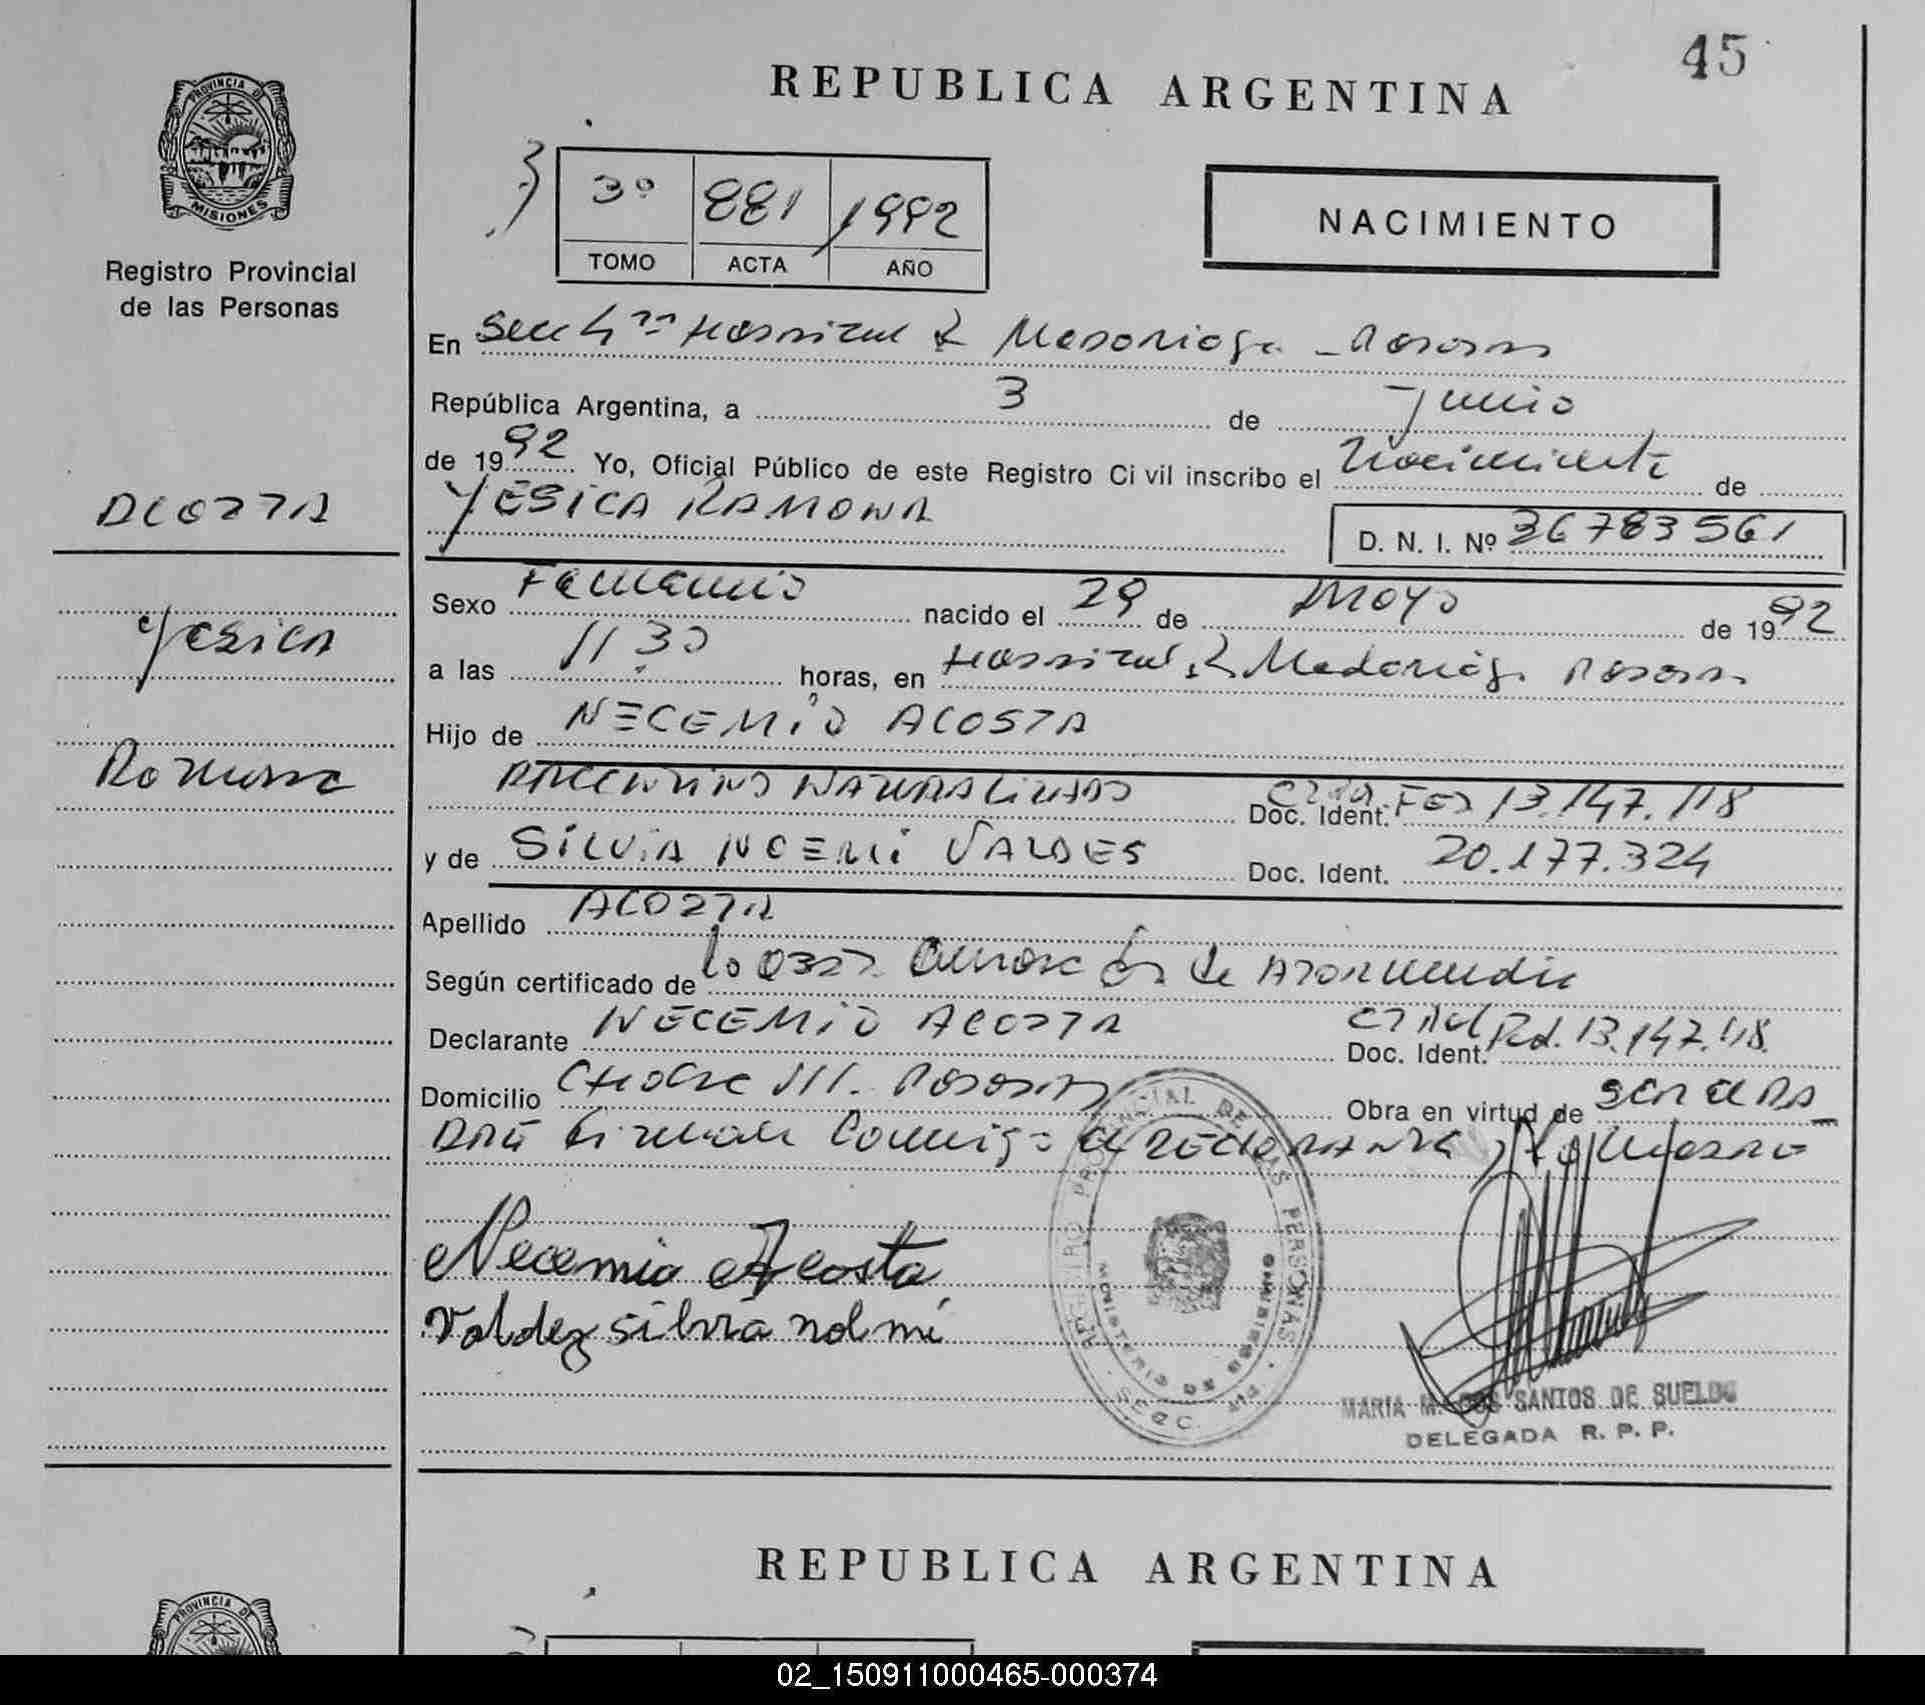 45
REPUBLICA ARGENTINA
PROVINCIA DE
MISIONES
Registro Provincial
de las Personas
3º 881 1992
TOMO ACTA AÑO
NACIMIENTO
En Secc 4ta Hospital R Madariaga - Posadas
República Argentina, a 3 de Junio
de 1992 Yo, Oficial Público de este Registro Civil inscribo el nacimiento de
YESICA RAMONA
D. N. I. Nº 36783561
ACOSTA
Yesica
Ramona
Sexo Femenino nacido el 29 de Mayo de 1992
a las 11 30 horas, en Hospital R Madariaga Posadas
Hijo de NECEMIO ACOSTA
ARGENTINO NATURALIZADO Doc. Ident. 13.147.118
y de SILVIA NOEMI VALDES Doc. Ident. 20.177.324
Apellido ACOSTA
Según certificado de la Obst de
Declarante NECEMIO ACOSTA Doc. Ident. 13.147.118
Domicilio Posadas Obra en virtud de ser el PA-
DRE firman conmigo el DECLARANTE y la
Necemio Acosta
Valdez silvia nolmi
REGISTRO PROVINCIAL DE LAS PERSONAS
MINISTERIO DE GOBIERNO
MARIA M. DOS SANTOS DE SUELDO
DELEGADA R. P. P.
REPUBLICA ARGENTINA
PROVINCIA DE
02_150911000465-000374